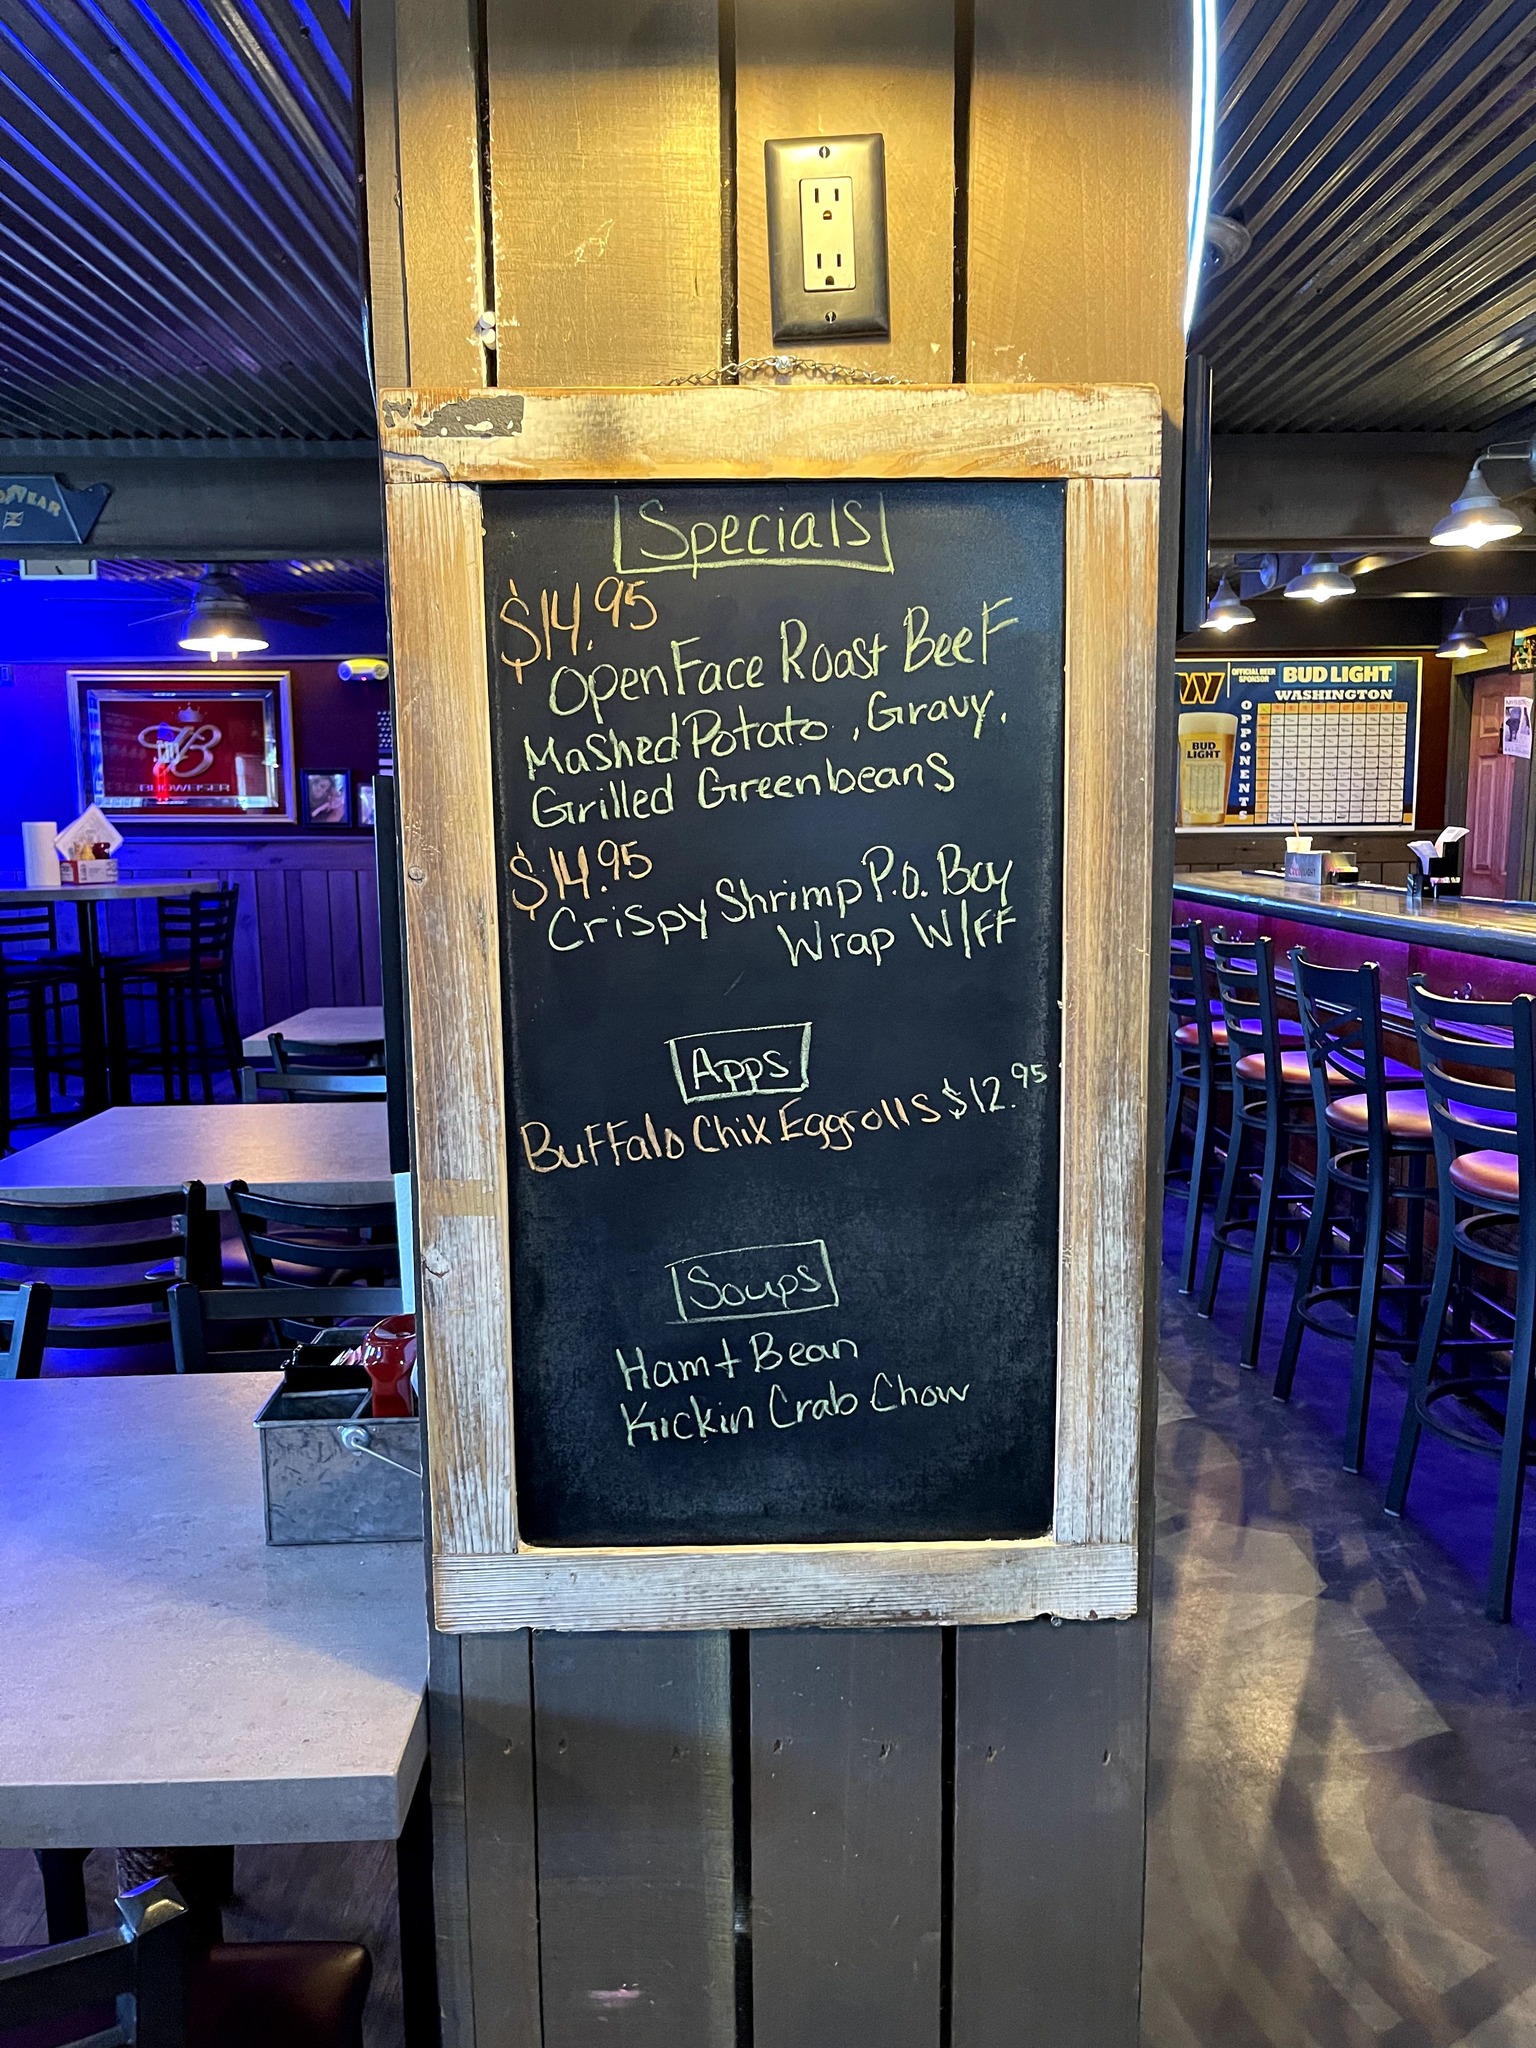 Specials
$14.95
Open Face Roast Beef
Mashed Potato, Gravy,
Grilled Greenbeans
$14.95
Crispy Shrimp P.O. Boy
Wrap W/FF
Apps
Buffalo Chix Eggrolls $12.95
Soups
Ham + Bean
Kickin Crab Chow
B
BUDWEISER
W
OFFICIAL BEER
SPONSOR
BUD LIGHT
WASHINGTON
OPPONENTS
BUD
LIGHT